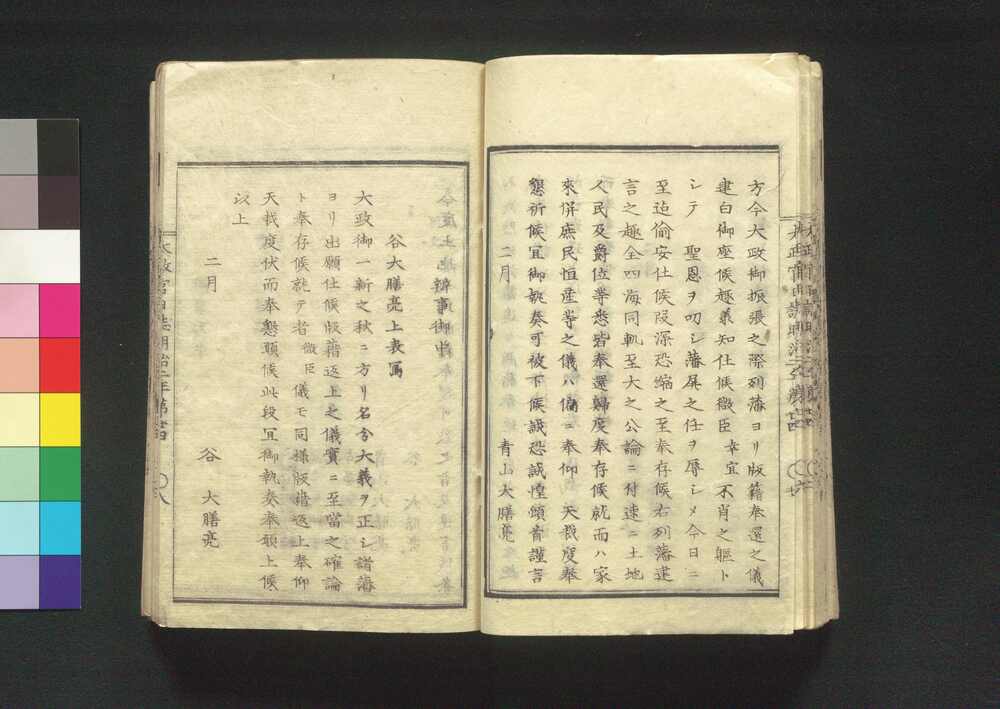 方今大政御振張之際列藩ヨリ版籍奉還之儀
建白御座候趣義知仕候微臣幸宜不肖之軀ト
シテ 聖恩ヲ叨シ藩屏之任ヲ辱シメ今日ニ
至迨偸安仕候段深恐縮之至奉存候右列藩建
言之趣全四海同軌至大之公論ニ付速ニ土地
人民及爵位等悉皆奉還歸度奉存候就而ハ家
來併庶民恒産等之儀ハ偏ニ奉仰 天裁度奉
懇祈候冝御執奏可被下候誠恐誠惶頓首謹言
二月 青山大膳亮
辨事御中
谷大膳亮上表寫
大政御一新之秋ニ方リ名分大義ヲ正シ諸藩
ヨリ出願仕候版籍返上之儀實ニ至當之確論
ト奉存候就テ者微臣儀モ同様版籍返上奉仰
天裁度伏而奉懇願候此段冝御執奏奉願上候
以上
二月
谷 大膳亮
太政官日誌明治二年第